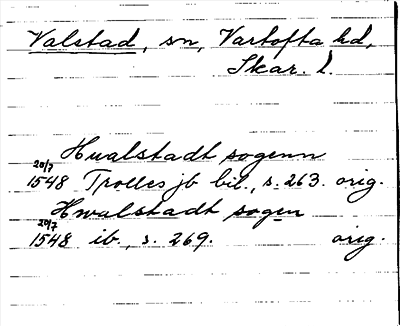 Valstad, sn, Vartofta hd,
Skar. l.
Hualstadt sogenn
20/7 1548 Trolles jb bil., s. 263. orig.
Hwalstadt sogen
20/7 1548 ib., s. 269. orig.